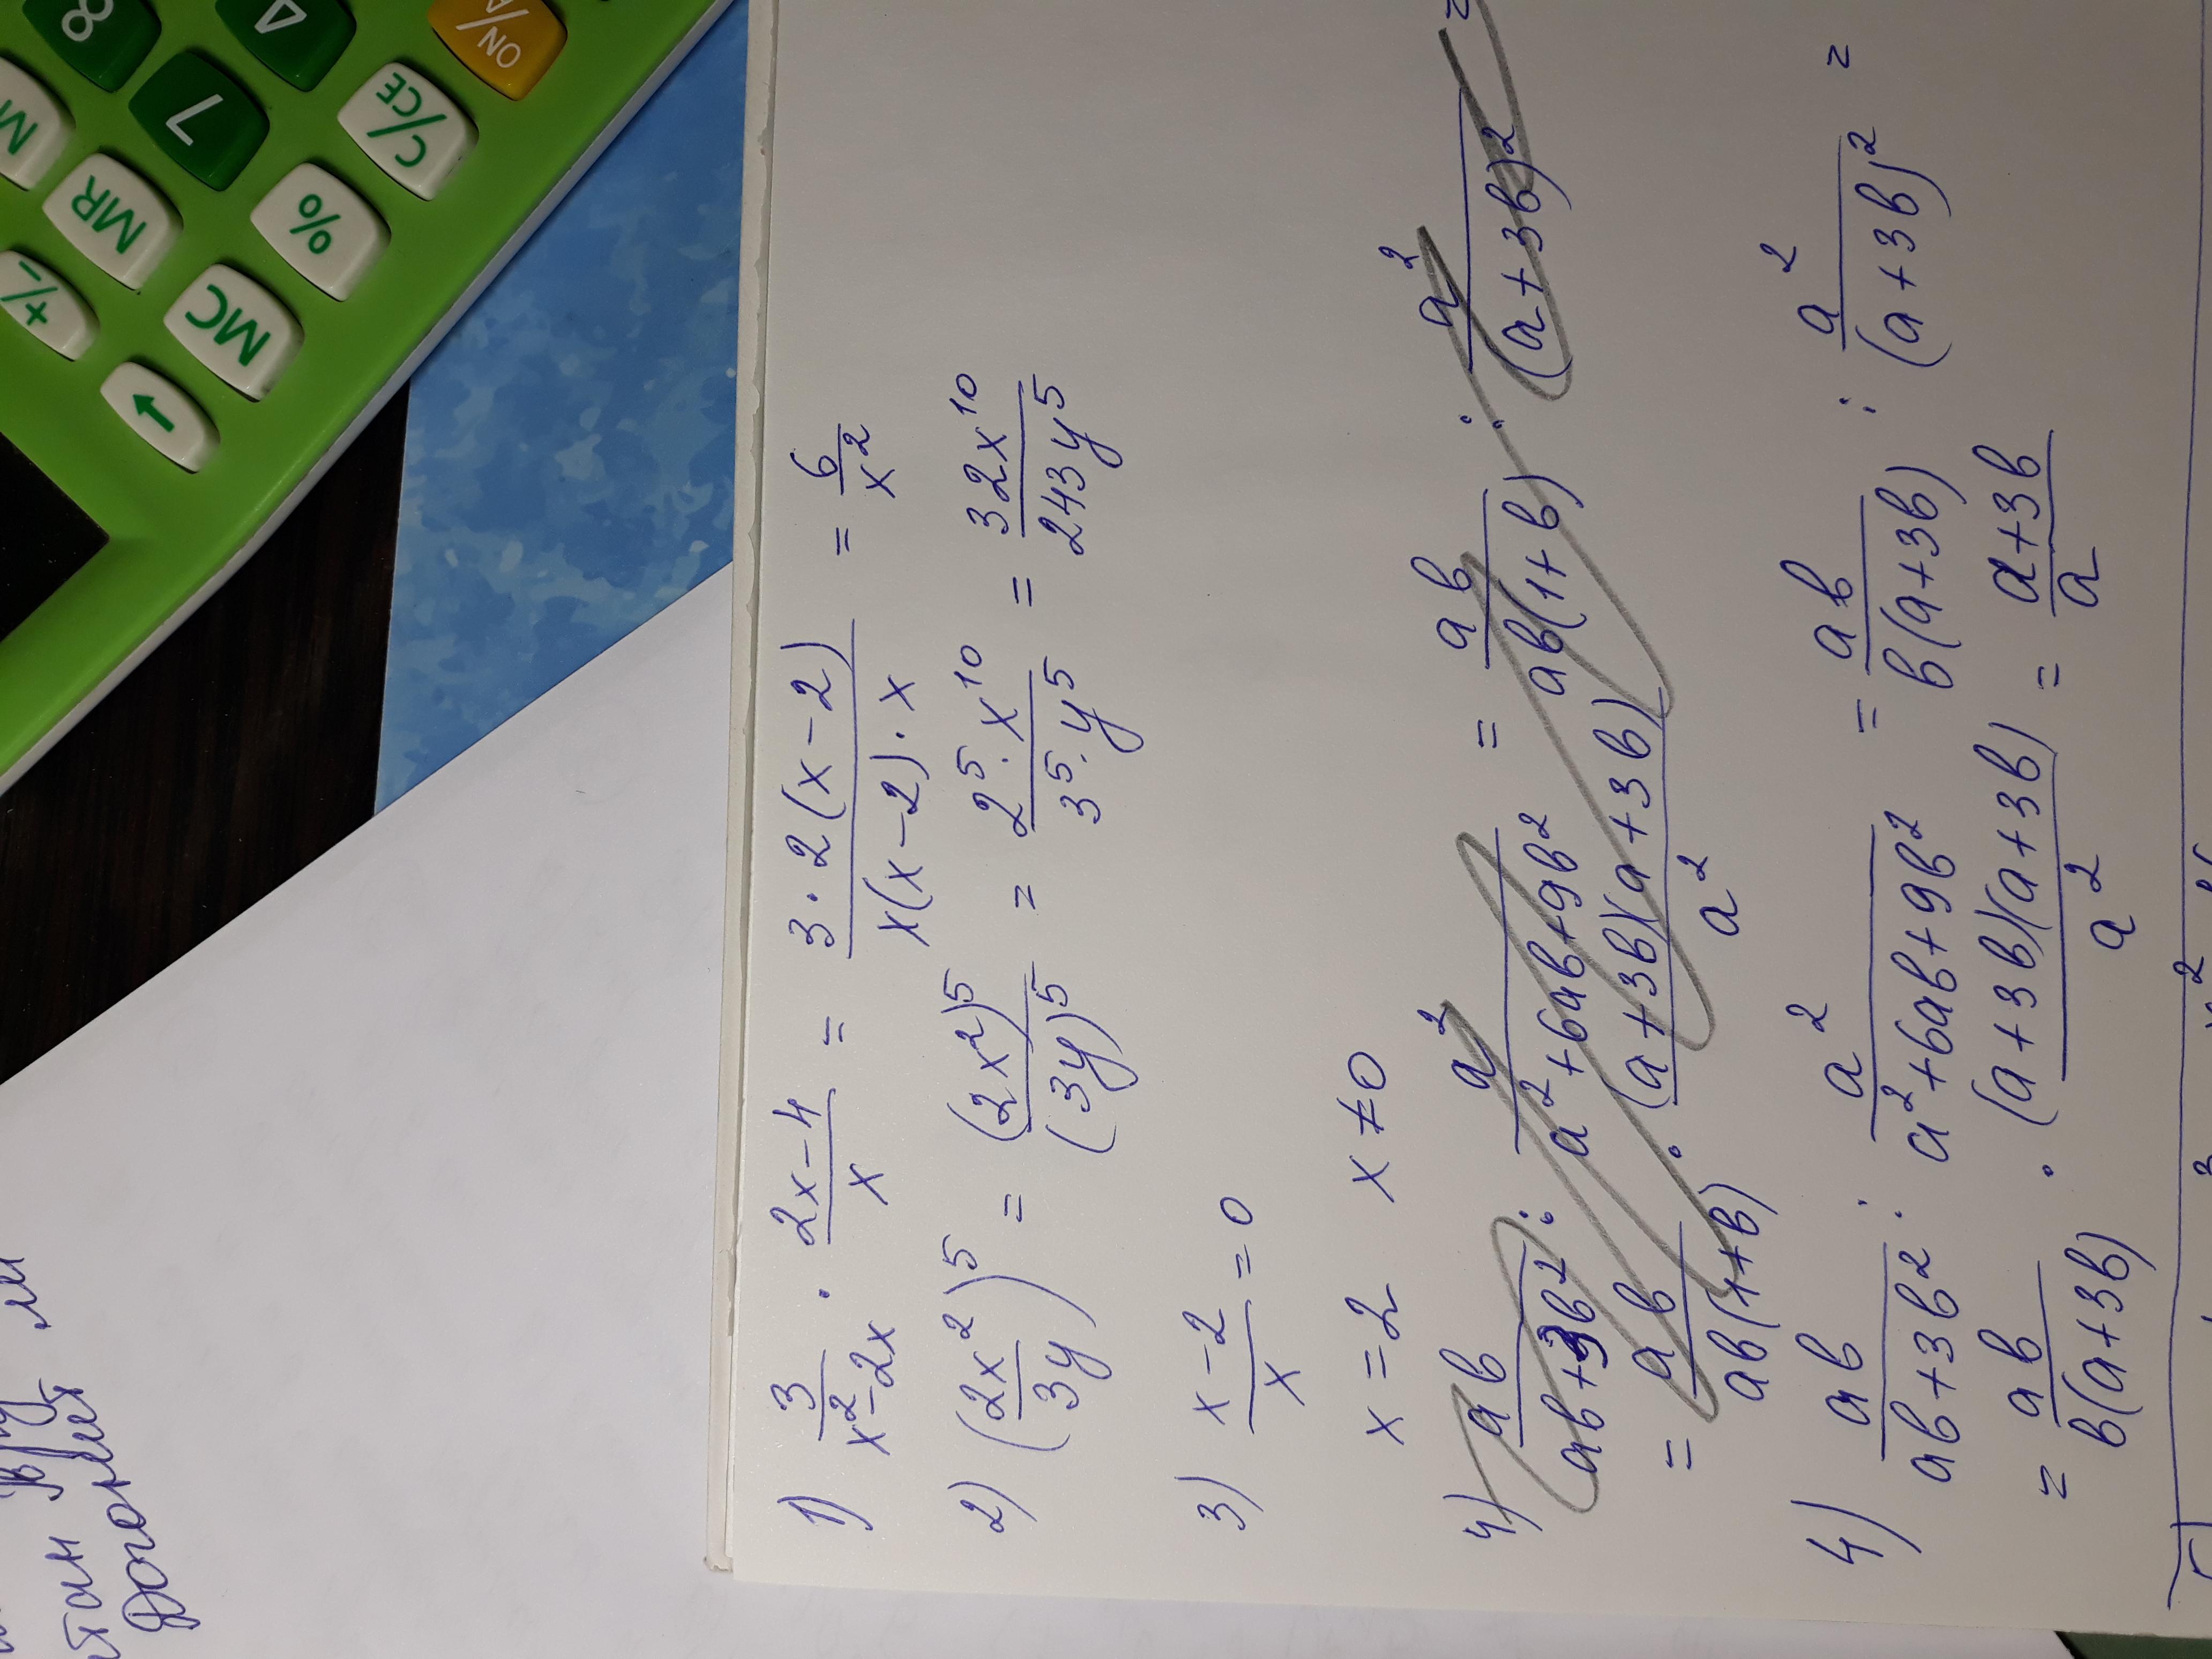 1) 3/(x²-2x) · (2x-4)/x = 3·2(x-2)/(x(x-2)·x) = 6/x²
2) (2x²/3y)⁵ = (2x²)⁵/(3y)⁵ = 2⁵·x¹⁰/3⁵·y⁵ = 32x¹⁰/243y⁵
3) (x-2)/x = 0
x=2 x≠0
4) ab/(ab+3b²) : a²/(a²+6ab+9b²) = ab/(ab(1+b)) : a²/(a+3b)² =
= ab/(ab(1+b)) · (a+3b)(a+3b)/a²
4) ab/(ab+3b²) : a²/(a²+6ab+9b²) = ab/(b(a+3b)) : a²/(a+3b)² =
= ab/(b(a+3b)) · (a+3b)(a+3b)/a² = (a+3b)/a
8
4
ON/A
7
C/CE
MR
%
+/-
MC